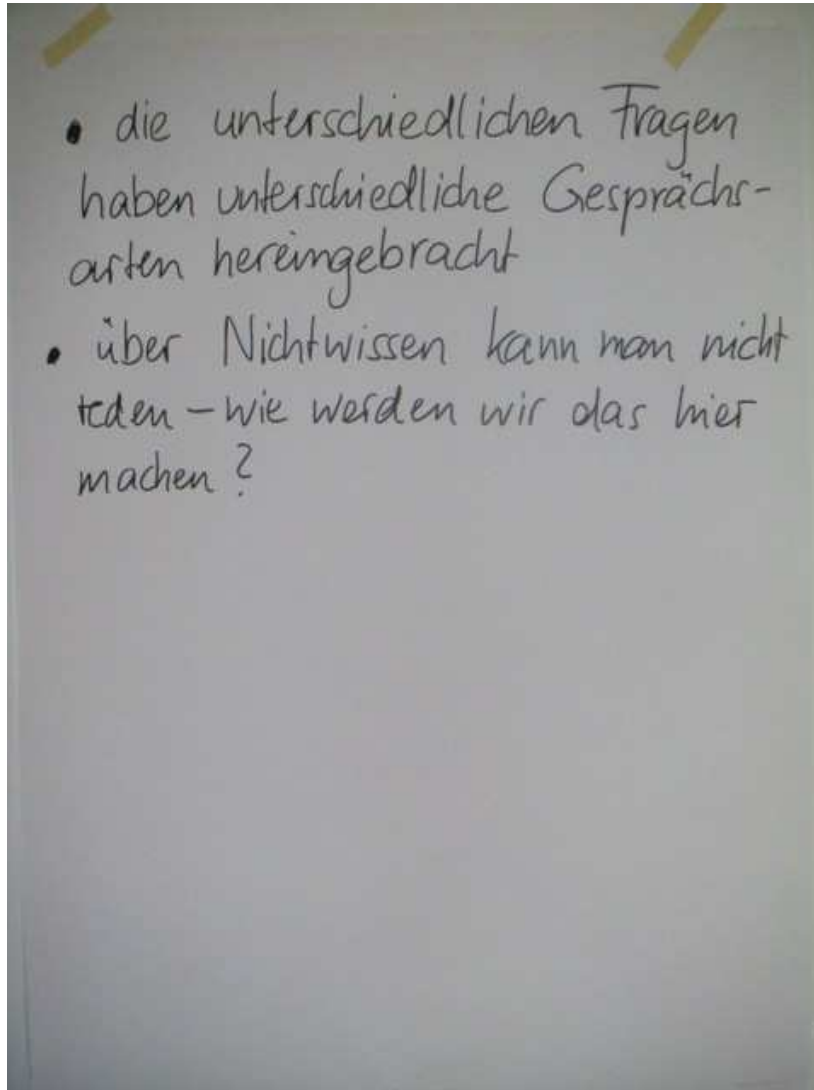 • die unterschiedlichen Fragen
haben unterschiedliche Gesprächs-
arten hereingebracht
• über Nichtwissen kann man nicht
reden – wie werden wir das hier
machen?